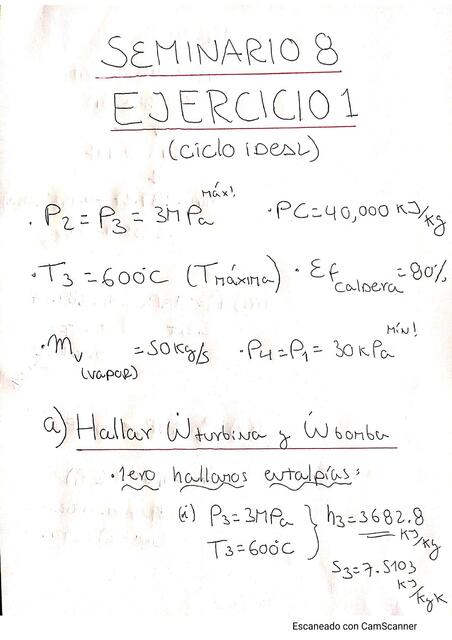 SEMINARIO 8
EJERCICIO 1
(ciclo iDEAL)
· P2 = P3 = 3MPa máx! · PC = 40,000 KJ/kg
· T3 = 600°C (Tmáxima) · Ef caldera = 80%
· mv (vapor) = 50 kg/s · P4 = P1 = 30 kPa mín!
a) Hallar Ẇturbina y Ẇbomba
· 1ero hallamos entalpías:
(i) P3 = 3MPa } h3 = 3682.8 KJ/kg
T3 = 600°C
S3 = 7.5103 KJ/kgK
Escaneado con CamScanner